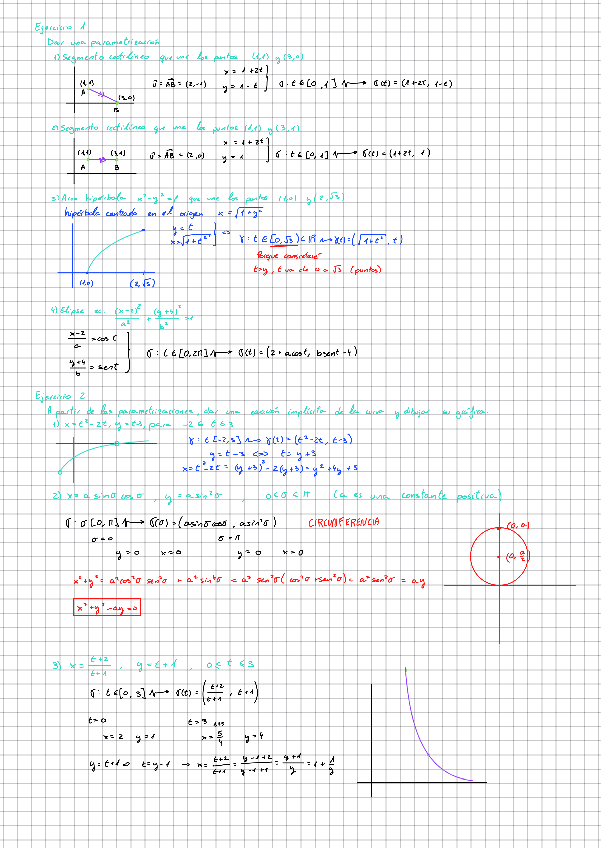 Ejercicio 1
Dar una parametrización
1) Segmento rectilíneo que une los puntos (1,1) y (3,0)
(1,1) A (3,0) B
v̄ = AB = (2,-1)
x = 1+2t
y = 1-t
σ: t ∈ [0,1] ⟼ σ(t) = (1+2t, 1-t)
2) Segmento rectilíneo que une los puntos (1,1) y (3,1)
(1,1) (3,1)
A B
v̄ = AB = (2,0)
x = 1+2t
y = 1
σ: t ∈ [0,1] ⟼ σ(t) = (1+2t, 1)
3) Arco hipérbola x²-y²=1 que une los puntos (1,0) y (2,√3)
hipérbola centrada en el origen x = √1+y²
y = t
x = √1+t²
⇔ γ: t ∈ [0,√3] ⊂ ℝ ⟼ γ(t) = (√1+t², t)
Porque consideré
t=y, t va de 0 a √3 (puntos)
(1,0) (2,√3)
4) Elipse ec. (x-2)²/a² + (y+4)²/b² = 1
x-2/a = cos t
y+4/b = sen t
σ: t ∈ [0,2π] ⟼ σ(t) = (2+a cos t, b sen t - 4)
Ejercicio 2
A partir de las parametrizaciones, dar una ecuación implícita de la curva y dibujar su gráfica.
1) x = t²-2t, y = t-3, para -2 ≤ t ≤ 3
γ: t [-2,3] ⟼ γ(t) = (t²-2t, t-3)
y = t-3 ⇔ t = y+3
x = t²-2t = (y+3)² - 2(y+3) = y²+4y+3
2) x = a sin σ cos σ , y = a sin² σ , 0 < σ < π (a es una constante positiva)
σ: σ [0,π] ⟼ σ(σ) = (a sin σ cos σ , a sin² σ) CIRCUNFERENCIA
σ = 0 σ = π
y = 0 x = 0 y = 0 x = 0
(0,a)
(0, a/2)
x²+y² = a² cos² σ sen² σ + a² sin⁴ σ = a² sen² σ (cos² σ + sen² σ) = a² sen² σ = ay
x²+y²-ay = 0
3) x = t+2/t+1 , y = t+1 , 0 ≤ t ≤ 3
σ: t ∈ [0,3] ⟼ σ(t) = (t+2/t+1 , t+1)
t = 0 t = 3
x = 2 y = 1 x = 5/4 y = 4
y = t+1 t = y-1 → x = t+2/t+1 = y-1+2/y-1+1 = y+1/y = 1 + 1/y